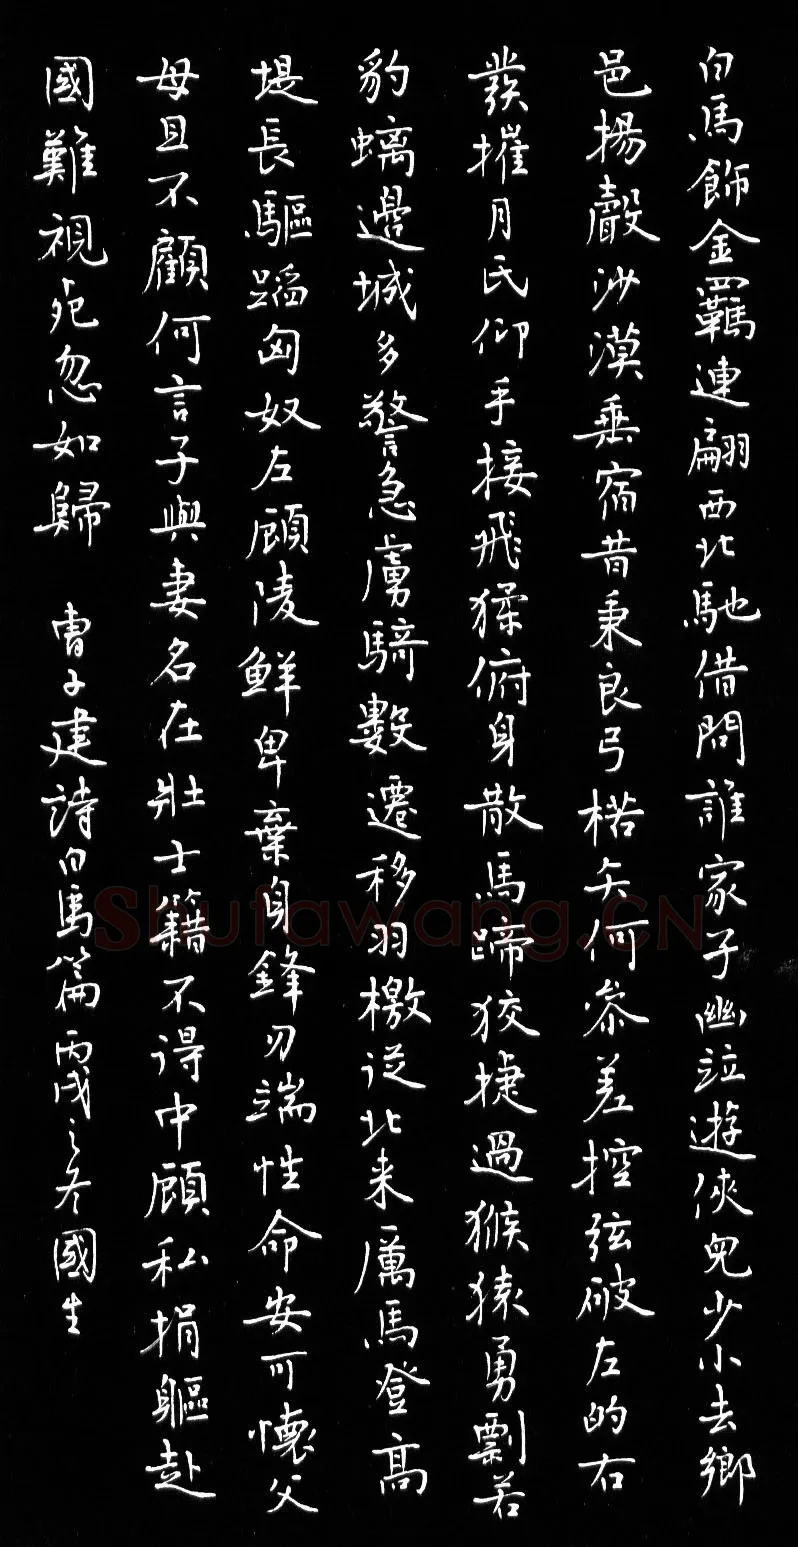 白馬飾金羈連翩西北馳借問誰家子幽并遊俠兒少小去鄉
邑揚聲沙漠垂宿昔秉良弓楛矢何參差控弦破左的右
發摧月氏仰手接飛猱俯身散馬蹄狡捷過猴猿勇剽若
豹螭邊城多警急虜騎數遷移羽檄從北来厲馬登高
堤長驅蹈匈奴左顧陵鮮卑棄身鋒刃端性命安可懷父
母且不顧何言子與妻名在壯士籍不得中顧私捐軀赴
國難視死忽如歸 曹子建詩白馬篇丙戌之冬國生
Shufawang.CN